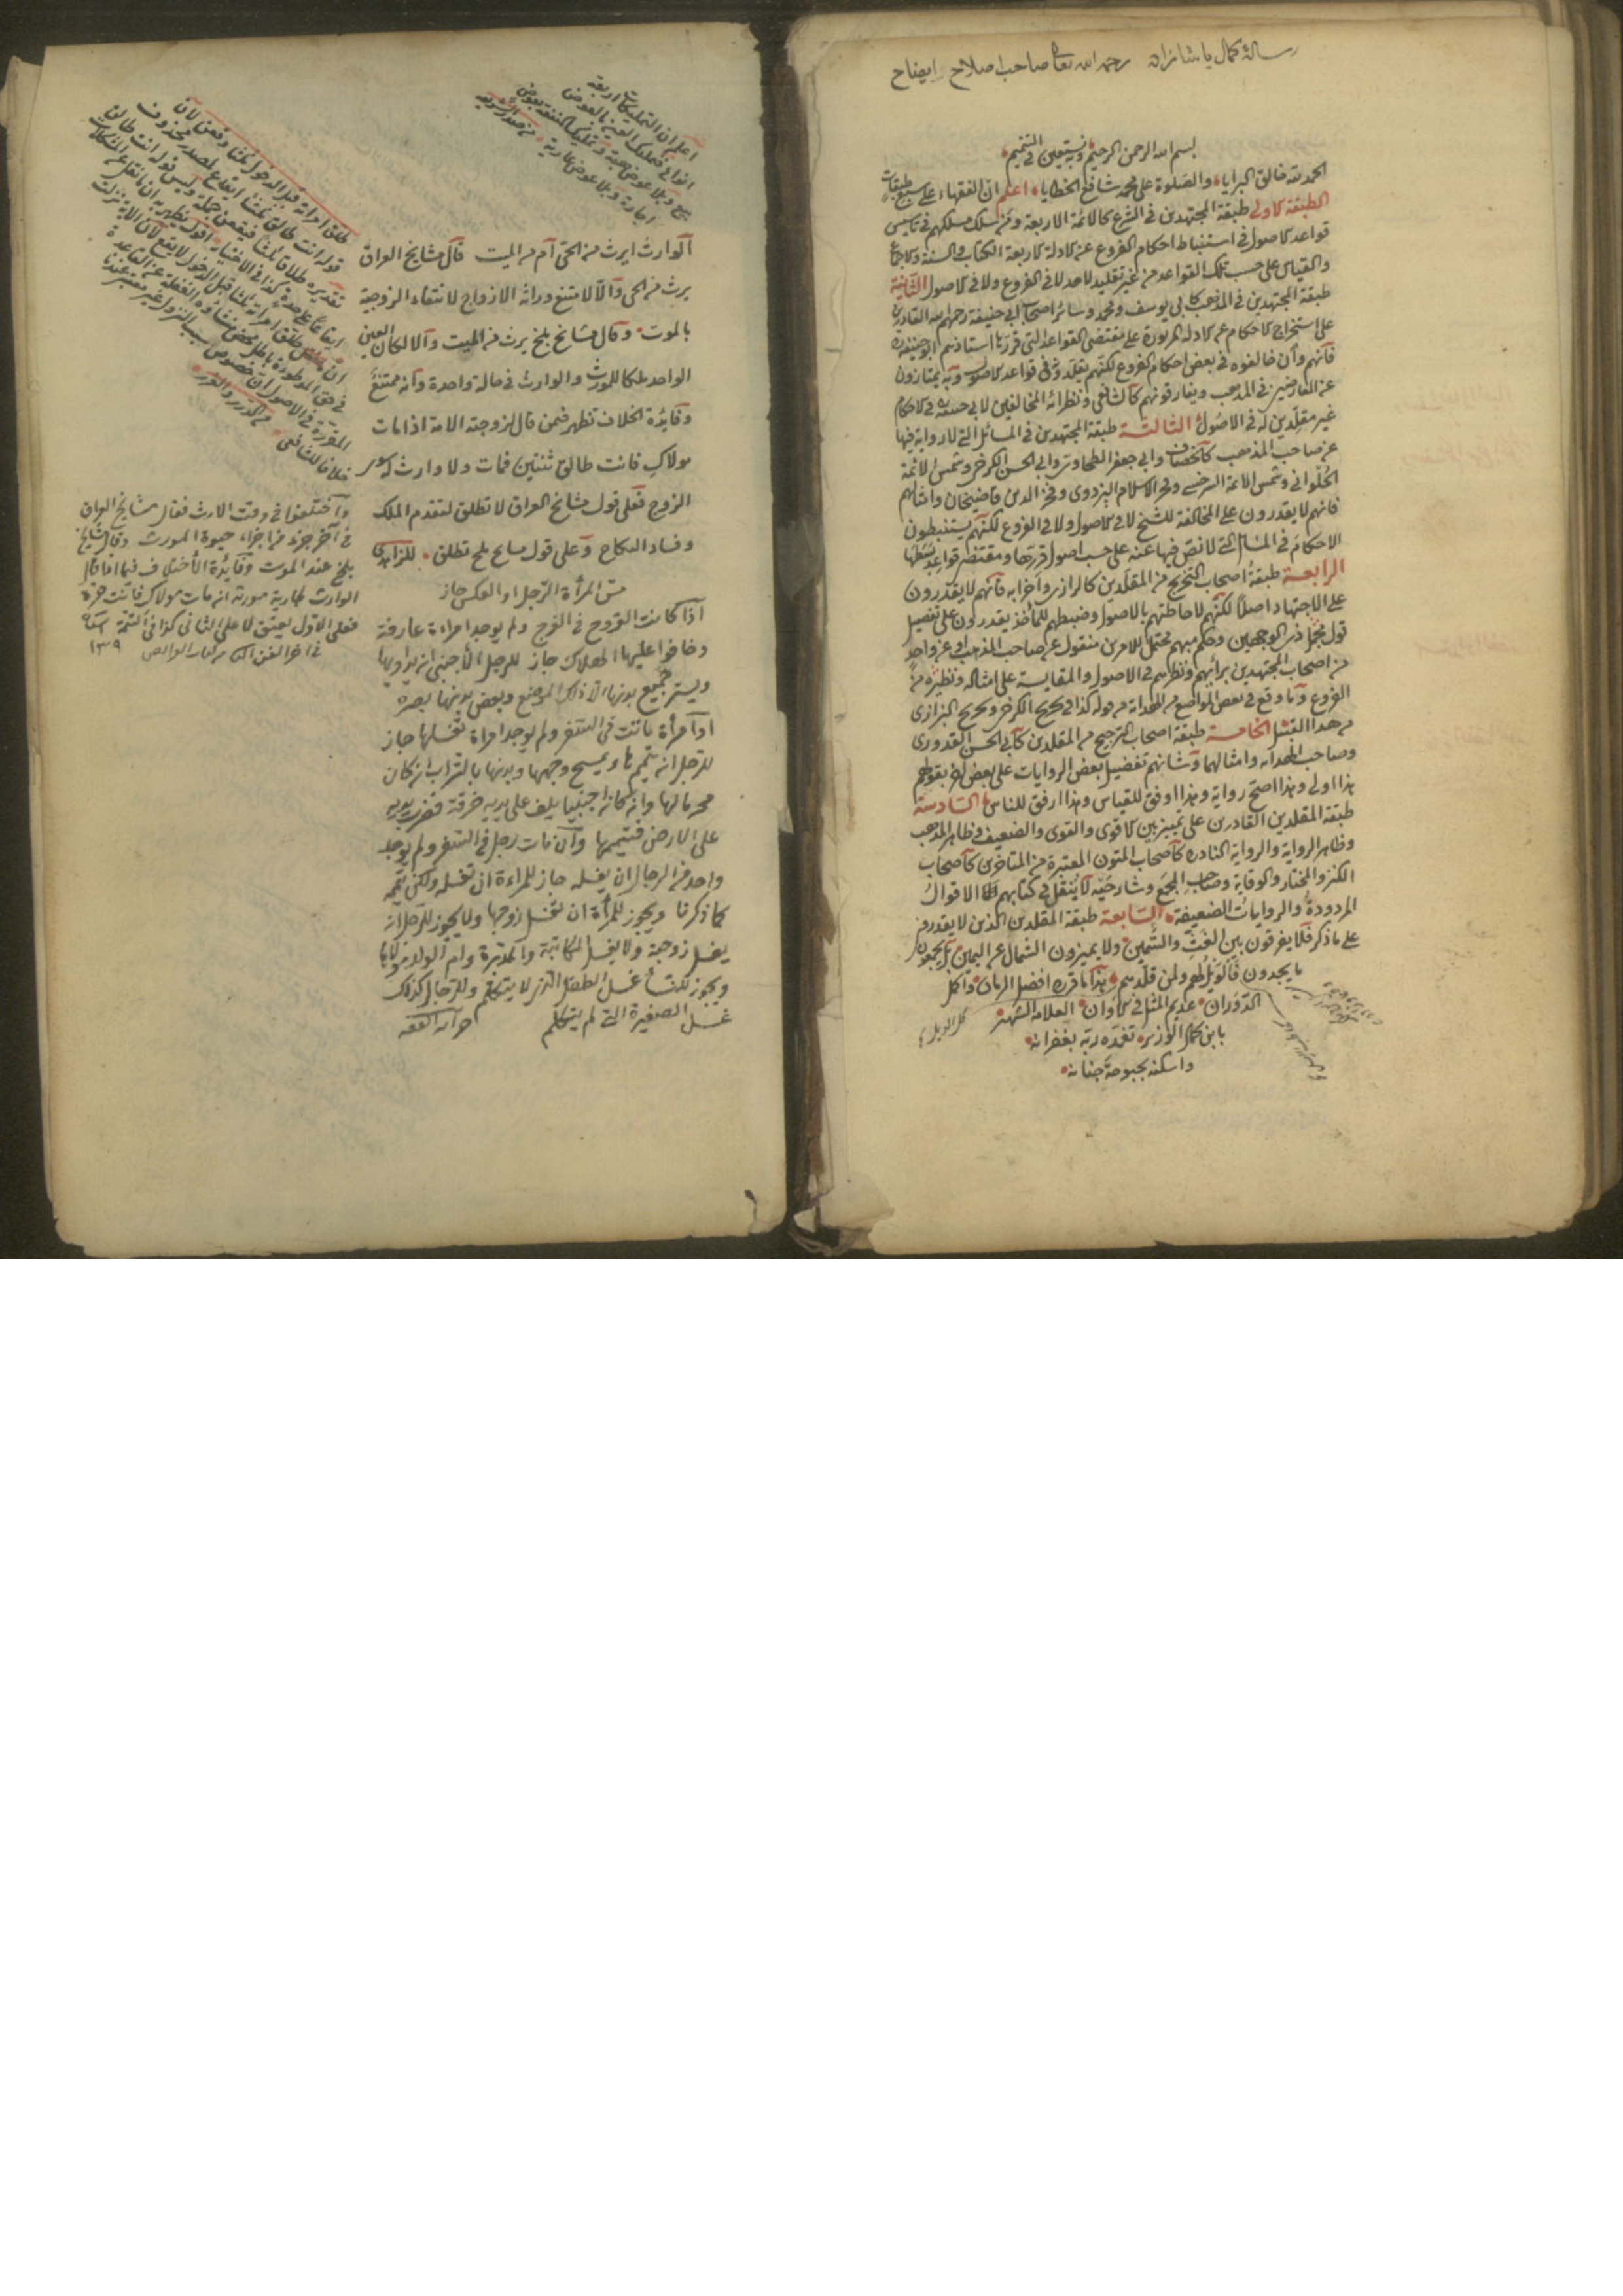 رسالة كمال پاشا زاده رحمه الله تعالى صاحب اصلاح ايضاح
بسم الله الرحمن الرحيم وبه نستعين في التتميم
الحمد لله خالق البرايا والصلوة على محمد شافع الخطايا اعلم ان الفقهاء على سبع طبقات
الطبقة الاولى طبقة المجتهدين في الشرع كالائمة الاربعة ومن سلك مسلكهم في تاسيس
قواعد الاصول في استنباط احكام الفروع عن الادلة الاربعة الكتاب والسنة والاجماع
والقياس على حسب تلك القواعد من غير تقليد لاحد لا في الفروع ولا في الاصول الثانية
طبقة المجتهدين في المذهب كابي يوسف ومحمد وسائر اصحاب ابي حنيفة رحمهم الله القادرين
على استخراج الاحكام عن الادلة المزبورة على مقتضى القواعد التي قررها استاذهم ابو حنيفة
فانهم وان خالفوه في بعض احكام الفروع لكنهم يقلدونه في قواعد الاصول وبه يمتازون
عن المعارضين في المذهب ويفارقونهم كالشافعي ونظرائه المخالفين لابي حنيفة في الاحكام
غير مقلدين له في الاصول الثالثة طبقة المجتهدين في المسائل التي لا رواية فيها
عن صاحب المذهب كالخصاف وابي جعفر الطحاوي وابي الحسن الكرخي وشمس الائمة
الحلواني وشمس الائمة السرخسي وفخر الاسلام البزدوي وفخر الدين قاضيخان وامثالهم
فانهم لا يقدرون على المخالفة للشيخ لا في الاصول ولا في الفروع لكنهم يستنبطون
الاحكام في المسائل التي لا نص فيها عنه على حسب اصول قررها ومقتضى قواعد بسطها
الرابعة طبقة اصحاب التخريج من المقلدين كالرازي واضرابه فانهم لا يقدرون
على الاجتهاد اصلا لكنهم لاحاطتهم بالاصول وضبطهم للمأخذ يقدرون على تفصيل
قول مجمل ذي الوجهين وحكم مبهم محتمل للامرين منقول عن صاحب المذهب او عن واحد
من اصحاب المجتهدين برأيهم ونظرهم في الاصول والمقايسة على امثاله ونظيره من
الفروع وما وقع في بعض المواضع من الهداية من قوله كذا في تخريج الكرخي وتخريج الرازي
من هذا القبيل الخامسة طبقة اصحاب الترجيح من المقلدين كابي الحسن القدوري
وصاحب الهداية وامثالهما وشانهم تفضيل بعض الروايات على بعض اخر بقولهم
هذا اولى وهذا اصح رواية وهذا اوفق للقياس وهذا ارفق للناس السادسة
طبقة المقلدين القادرين على تمييز بين الاقوى والقوى والضعيف وظاهر المذهب
وظاهر الرواية والرواية النادرة كاصحاب المتون المعتبرة من المتاخرين كاصحاب
الكنز والمختار والوقاية وصاحب المجمع وشانهم لا ينقل في كتابهم الاقوال
المردودة والروايات الضعيفة السابعة طبقة المقلدين الذين لا يقدرون
على ما ذكر فلا يفرقون بين الغث والسمين ولا يميزون الشمال عن اليمين بل يجمعون
ما يجدون فالويل لهم ولمن قلدهم هذا ما قرره افضل الزمان واكمل
الدوران عديم المثل في الاوان العلامة الشهير
بابن كمال الوزير تغمده ربه بغفرانه
واسكنه بحبوحة جنانه
اعلم ان التمليكات اربعة
انواع فتمليك العين بالعوض
بيع وبلا عوض هبة وتمليك المنفعة بعوض
اجارة وبلا عوض عارية
الوارث ايرث من الحي ام من الميت قال مشايخ العراق
يرث من الحي والا لامتنع وراثة الازواج لانتفاء الزوجية
بالموت وقال مشايخ بلخ يرث من الميت والا لكان العين
الواحد ملكا للمورث والوارث في حالة واحدة وانه ممتنع
وفائدة الخلاف تظهر فيمن قال لزوجته الامة اذا مات
مولاك فانت طالق ثنتين فمات ولا وارث له سوى
الزوج فعلى قول مشايخ العراق لا تطلق لتقدم الملك
وفساد النكاح وعلى قول مشايخ بلخ تطلق للزاهدي
مس المرأة الرجل او العكس جاز
اذا كانت القروح في الفرج ولم يوجد امراءة عارفة
وخافوا عليها الهلاك جاز للرجل الاجنبي ان يداويها
ويستر جميع بدنها الا ذلك الموضع وبغض بدنها بصره
او امرأة ماتت في السفر ولم يوجد امراة تغسلها جاز
للرجل انه يتممها ويمسح وجهها ويديها بالتراب ان كان
محرما لها وان كان اجنبيا يلف على يديه خرقة فتضرب يديه
على الارض فتيممها وان مات رجل في السفر ولم يوجد
واحد من الرجال ان يغسله جاز للمراءة ان تغسله ولكن تيممه
كما ذكرنا ويجوز للمرأة ان تغسل زوجها ولا يجوز للرجل ان
يغسل زوجة ولا يغسل المكاتبة والمدبرة وام الولد مولاها
ويجوز للنساء غسل الطفل الذي لا يتكلم وللرجال كذلك
غسل الصغيرة التي لم يتكلم خزانة الفقه
طلق امراته قبل الدخول ثلثا وقعن لان
قوله انت طالق ثلثا ايقاع لمصدر محذوف
تقديره طلاقا ثلثا فيقعن جملة وليس قوله انت طالق
ايقاعا على حدة كذا في الاختيار
خلافا للشافعي من الدرر والغرر
واختلفوا في وقت الارث فقال مشايخ العراق
في آخر جزء من اجزاء حيوة المورث وقال مشايخ
بلخ عند الموت وفائدة الاختلاف فيما اذا قال
الوارث لجارية مورثه ان مات مولاك فانت حرة
فعلى الاول يعتق لا على الثاني كذا في التتمة
١٣٩